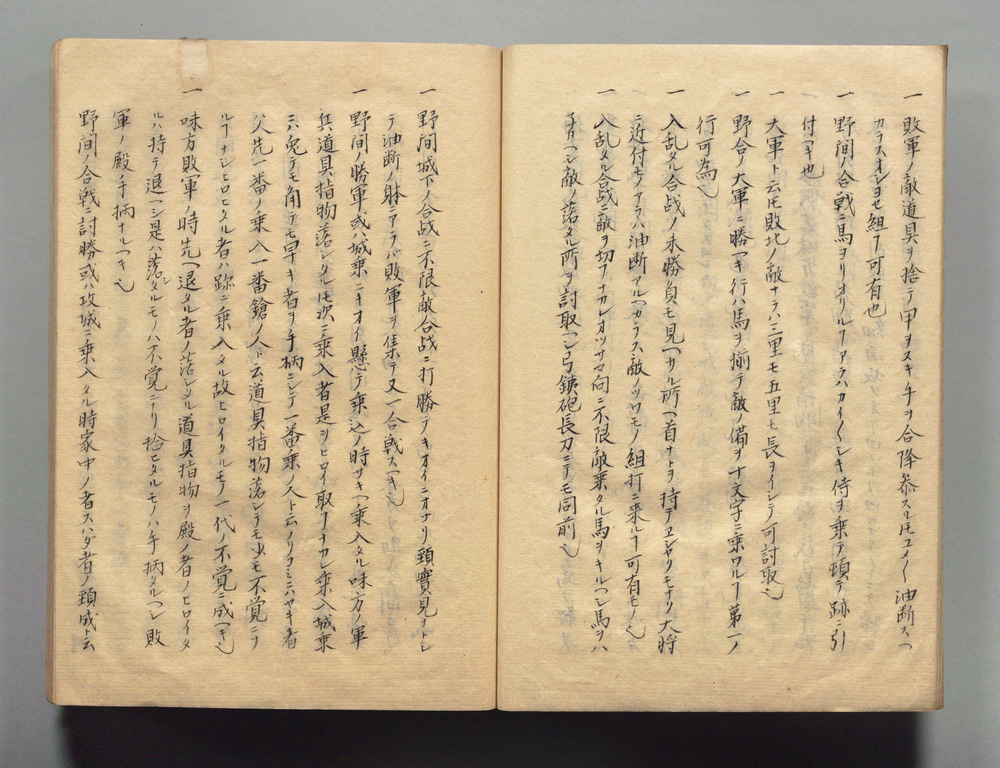 一 敗軍ノ敵道具ヲ捨テ甲ヲヌキ手ヲ合降参スル𪜈ユメ〱油断スヘ
カラスオシヨセ組ヿ可有也
一 野間ノ合戦ニ馬ヨリオリルヿアラハカイ〱シキ侍ヲ乗テ頓テ跡ニ引
付ヘキ也
一 大軍ト云𪜈敗北ノ敵ナラハ三里モ五里モ長ヲイシテ可討取也
一 野合ノ大軍ニ勝ヘキ行ハ馬ヲ揃テ敵ノ備ヲ十文字ニ乗ワルヿ第一ノ
行可為也
一 入乱タル合戦ノ未勝負モ見ヘサル所ヘ首ナトヲ持テ モナリ大将
ニ近付モノアラハ油断アルヘカラス敵ノツワモノ組打ニ来ルヿ可有モノ也
一 入乱タル合戦ニ敵ヲ切ヿナカレオツサマ向ニ不限敵乗タル馬ヲキルヘシ馬ヲハ
ヘシ敵ノ落タル所ヲ討取ヘシ弓鉄砲長刀ニテモ同前也
一 野間城下ノ合戦ニ不限敵合戦ニ打勝テキオイニオナリ頸實見ナトシ
テ油断ノ躰ニアラバ敗軍ヲ集テ又一合戦スヘキ也
一 野間ノ勝軍或ハ城乗ニキオイ懸テ乗込ノ時サキヘ乗入タル味方ノ軍
兵道具指物落シタル𪜈次ニ乗入者是ヲヒロイ取ヿナカレ乗入城乗
ニハ兎テモ角テモ早キ者ヲ手柄ニシテ一番乗ノ人ト云ノリヨミニハヤキ者
父先一番ノ乗入一番鎗ノ人ト云道具指物落シテモ少モ不覚ニテ
ルヿナシヒロヒタル者ハ跡ニ乗入タル故ヒロイタルモノ一代ノ不覚ニ成ヘキ也
一 味方敗軍ノ時先ヘ退タル者ノ落シタル道具指物ヲ殿ノ者ノヒロイタ
ルハ持テ退ヘシ是ハ落シタルモノハ不覚ニナリ捨ヒタルモノハ手柄タルヘシ敗
軍ノ殿ノ手柄ナルヘキ也
一 野間ノ合戦ニ討勝或ハ攻城ニ乗入タル時家中ノ者スハダ者ノ頸成ト云